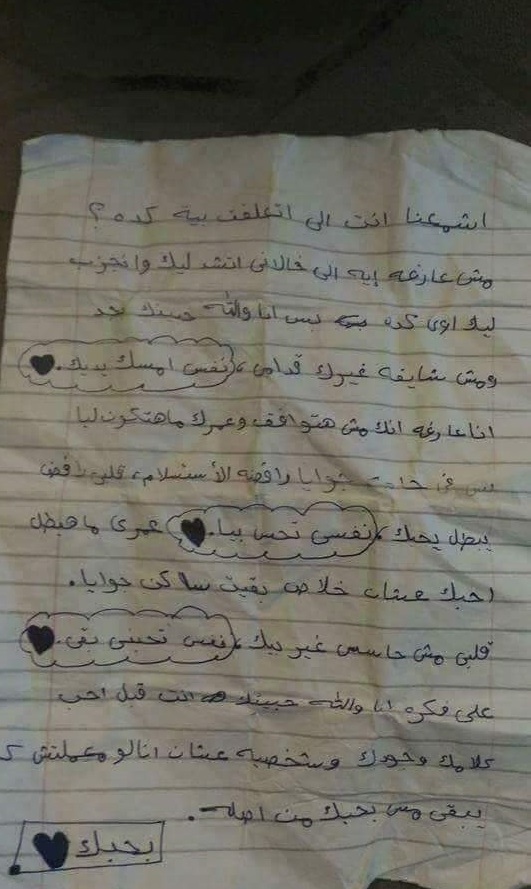 اشمعنا انت الى اتعلقت بية كده؟
مش عارفه إيه الى خلانى اتشد ليك وانجزب
ليك اوى كده بس انا والله حبيتك بجد
ومش شايفه غيرك قدامى، نفسى امسك يديك.
انا عارفه انك مش هتوافق وعمرك ماهتكون ليا
بس فى حاجه جوايا رافضه الأستسلام، قلبى رافض
يبطل يحبك، نفسى تحس بيا. عمرى ماهبطل
احبك عشان خلاص بقيت ساكن جوايا.
قلبى مش حاسس غير بيك، نفسى تحبنى بقى.
على فكره انا والله حبيتك انت قبل احب
كلامك وجودك وشخصيه عشان انا لو معملتش ك
يبقى مش بحبك من اصله.
بحبك